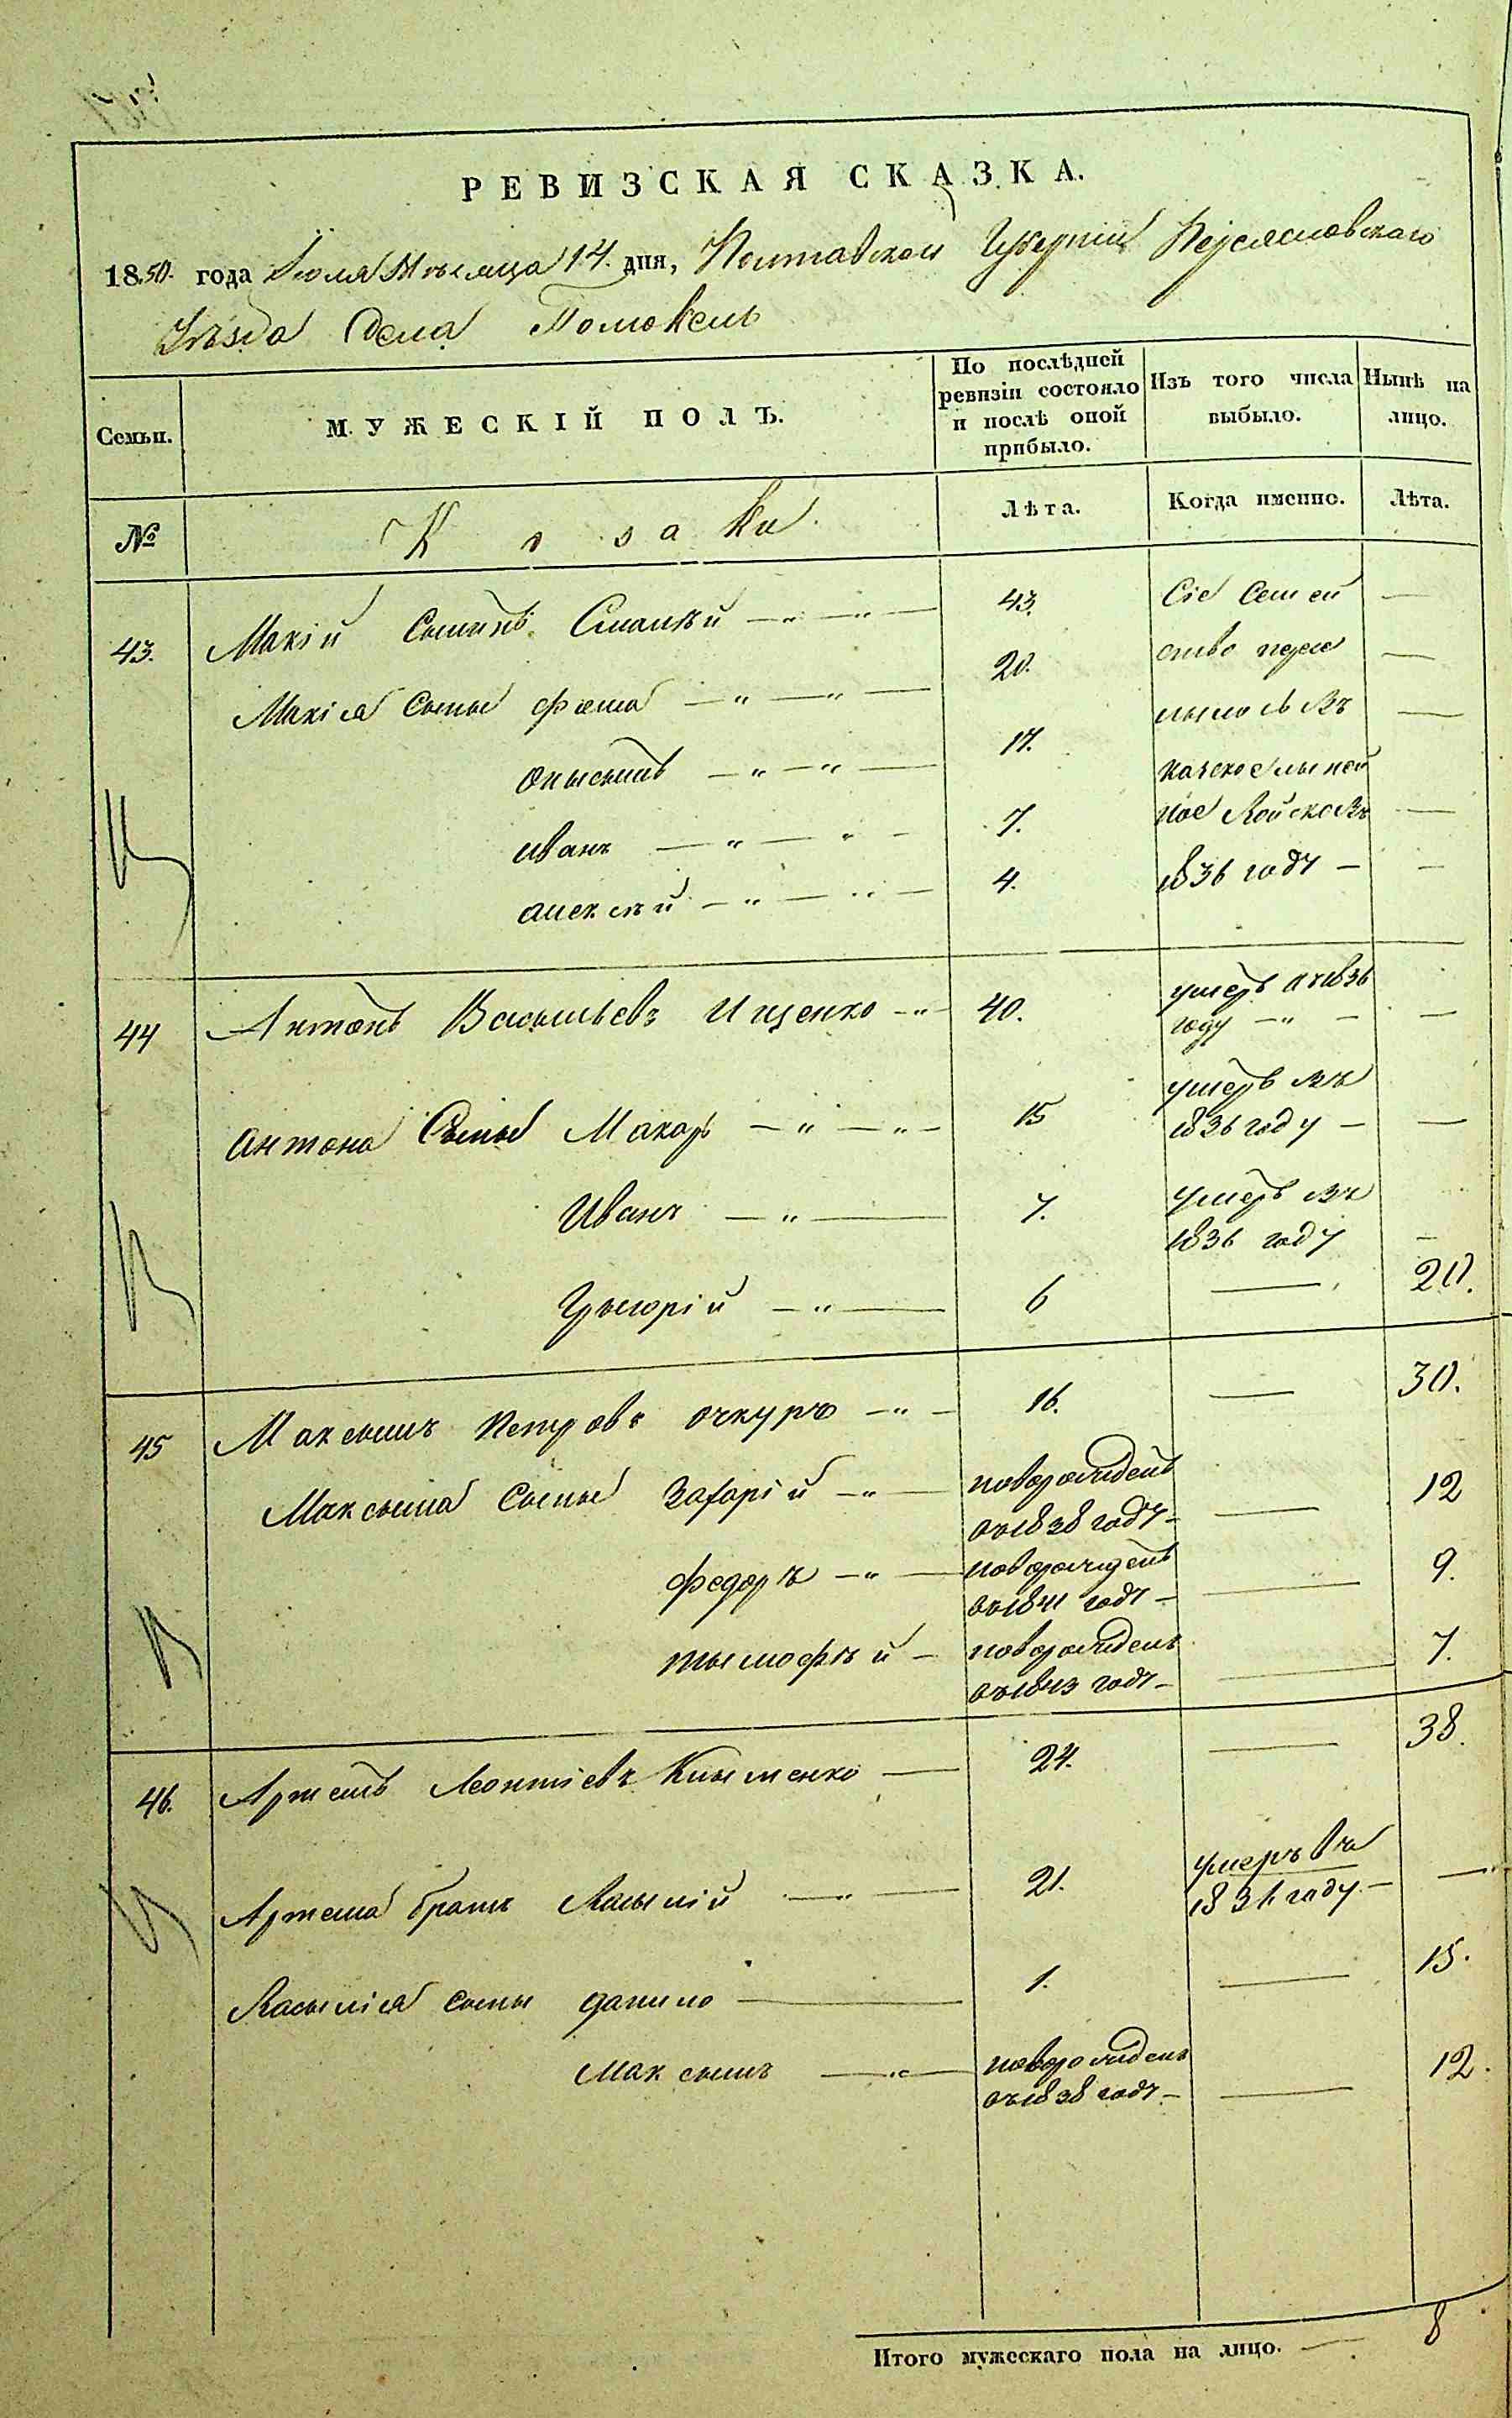 РЕВИЗСКАЯ СКАЗКА.
1850. года Іюля Мѣсяца 14. дня, Полтавской Губерніи Переяславскаго
Уѣзда Села Помокель
Семьи. МУЖЕСКІЙ ПОЛЪ. По послѣдней ревизіи состояло и послѣ оной прибыло. Изъ того числа выбыло. Нынѣ на лицо.
№ Козаки Лѣта. Когда именно. Лѣта.
43. Мокій 43. Сіе семей —
Мокія сыны Фома — " — " — 20. ство пере —
17. въ —
иванъ — " — " — 7. ное войсковъ —
алексѣй — " — " — 4. 1836 году — —
44 Антонъ Васыльевъ Ищенко — " — 40. умеръ
году — " — —
Антона Сыны Макаръ — " — " — 15 умеръ въ
1836 году — —
Иванъ — " — 7. умеръ въ
1836 году —
Грыгорій — " — 6 — 20.
45 Максымъ Петровъ очкуръ — " — 16. — 30.
Максыма Сыны Захарій — " — новорожденъ
въ 1838 году — — 12
федоръ — " — новорожденъ
въ 1841 году — — 9.
тымофѣй — новорожденъ
въ 1843 году — — 7.
46. Артемъ Леонтіевъ Клыменко — 24. — 38.
Артема братъ Васылій — " — 21. умеръ въ
году. — —
Васылія сыны данило — 1. — 15.
Максымъ — новорожденъ
въ 1838 году — — 12.
Итого мужескаго пола на лицо. — 8